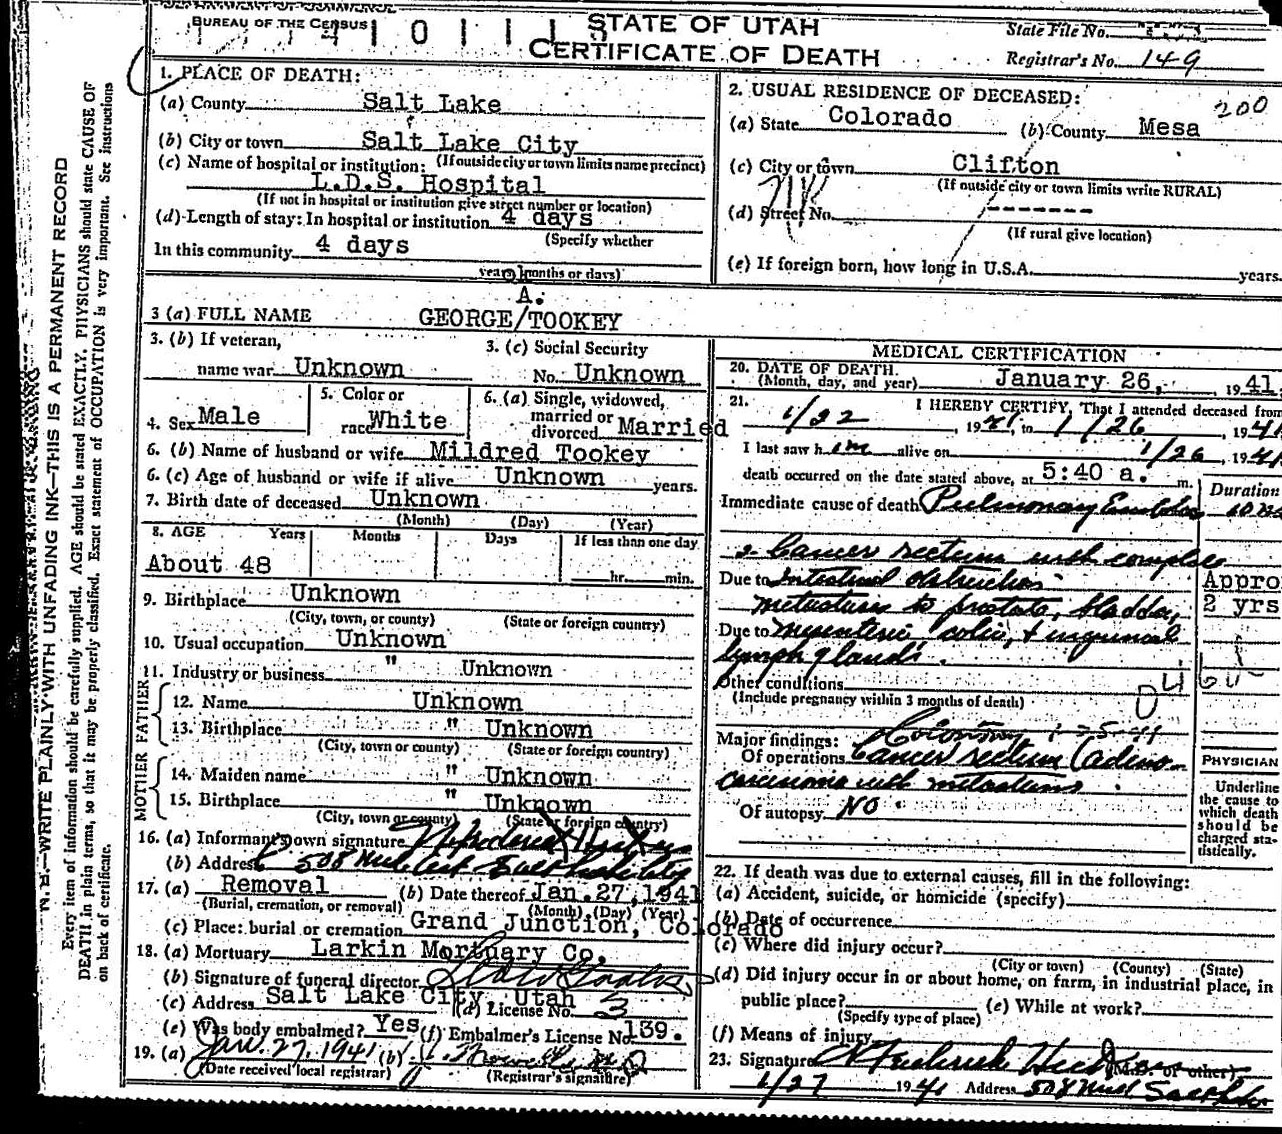 BUREAU OF THE CENSUS
STATE OF UTAH
CERTIFICATE OF DEATH
State File No.
Registrar's No. 149
1. PLACE OF DEATH:
(a) County Salt Lake
(b) City or town Salt Lake City
(If outside city or town limits name precinct)
(c) Name of hospital or institution:
L.D.S. Hospital
(If not in hospital or institution give street number or location)
(d) Length of stay: In hospital or institution 4 days
(Specify whether
In this community 4 days
years, months or days)
2. USUAL RESIDENCE OF DECEASED:
200
(a) State Colorado (b) County Mesa
(c) City or town Clifton
(If outside city or town limits write RURAL)
(d) Street No. -------
(If rural give location)
(e) If foreign born, how long in U.S.A. years.
A.
3 (a) FULL NAME GEORGE/TOOKEY
3. (b) If veteran,
name war Unknown
3. (c) Social Security
No. Unknown
4. Sex Male
5. Color or
race White
6. (a) Single, widowed,
married or
divorced Married
6. (b) Name of husband or wife Mildred Tookey
6. (c) Age of husband or wife if alive Unknown years.
7. Birth date of deceased Unknown
(Month) (Day) (Year)
8. AGE Years Months Days If less than one day
About 48 hr. min.
9. Birthplace Unknown
(City, town, or county) (State or foreign country)
10. Usual occupation Unknown
11. Industry or business " Unknown
FATHER
12. Name Unknown
13. Birthplace " Unknown
(City, town or county) (State or foreign country)
MOTHER
14. Maiden name " Unknown
15. Birthplace " Unknown
(City, town or county) (State or foreign country)
16. (a) Informant's own signature
(b) Address 508
17. (a) Removal (b) Date thereof Jan. 27, 1941
(Burial, cremation, or removal) (Month) (Day) (Year)
(c) Place: burial or cremation Grand Junction, Colorado
18. (a) Mortuary Larkin Mortuary Co.
(b) Signature of funeral director
(c) Address Salt Lake City, Utah (d) License No. 3
(e) Was body embalmed? Yes (f) Embalmer's License No. 139.
19. (a) Jan. 27, 1941 (b)
(Date received local registrar) (Registrar's signature)
MEDICAL CERTIFICATION
20. DATE OF DEATH.
(Month, day, and year) January 26, 1941
21. I HEREBY CERTIFY, That I attended deceased from
1/22, 1941, to 1/26, 1941
I last saw him alive on 1/26, 1941
death occurred on the date stated above, at 5:40 a. m.
Duration
Immediate cause of death Pulmonary Embolus
2 Cancer rectum with complete
Due to Intestinal obstruction
Appro
metastases to prostate, bladder,
2 yrs
Due to mesenteric colic, + inguinal
lymph glands.
Other conditions
(Include pregnancy within 3 months of death)
Major findings:
Of operations Cancer rectum (adeno-
carcinoma with metastases
Of autopsy NO.
PHYSICIAN
Underline
the cause to
which death
should be
charged sta-
tistically.
22. If death was due to external causes, fill in the following:
(a) Accident, suicide, or homicide (specify)
(b) Date of occurrence
(c) Where did injury occur?
(City or town) (County) (State)
(d) Did injury occur in or about home, on farm, in industrial place, in
public place? (e) While at work?
(Specify type of place)
(f) Means of injury
23. Signature (M.D. or other)
1/27 1941 Address 508
N. B.—WRITE PLAINLY WITH UNFADING INK—THIS IS A PERMANENT RECORD
Every item of information should be carefully supplied. AGE should be stated EXACTLY. PHYSICIANS should state CAUSE OF
DEATH in plain terms, so that it may be properly classified. Exact statement of OCCUPATION is very important. See instructions
on back of certificate.